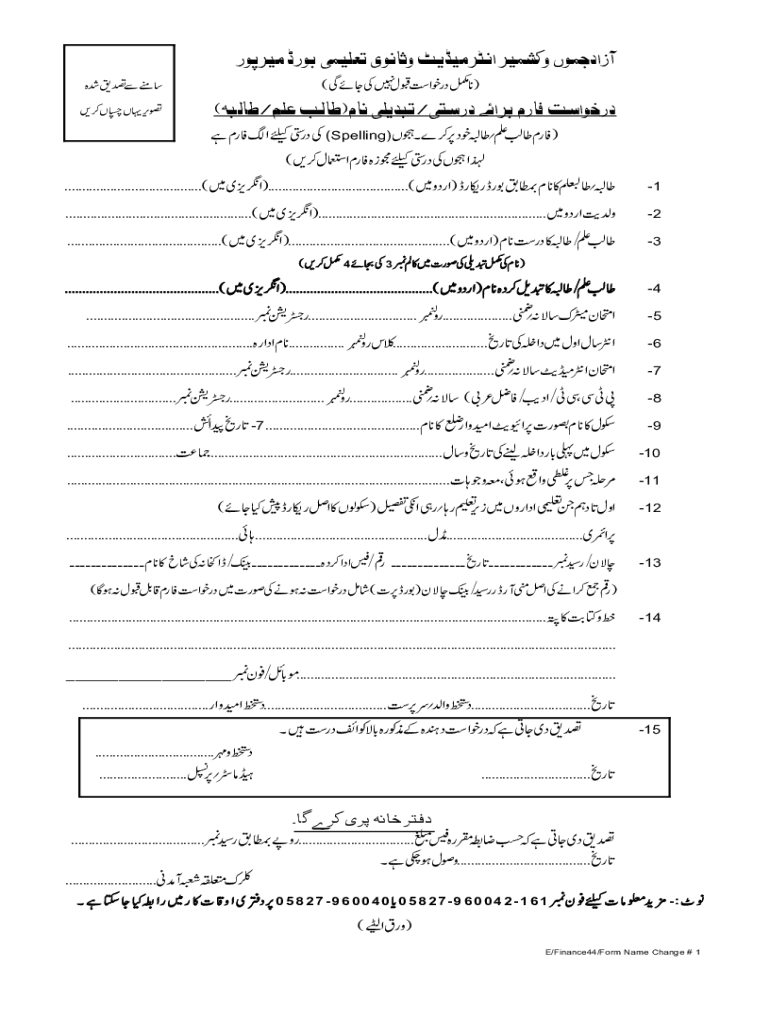 آزاد جموں وکشمیر انٹرمیڈیٹ وثانوی تعلیمی بورڈ میرپور
(نامکمل درخواست قبول نہیں کی جائے گی)
سامنے سے تصدیق شدہ
تصویر یہاں چسپاں کریں
درخواست فارم برائے درستی/تبدیلی نام(طالب علم/طالبہ)
( فارم طالب علم/طالبہ خود پر کرے۔ ہجوں (Spelling) کی درستی کیلئے الگ فارم ہے
لہذا ہجوں کی درستی کیلئے مجوزہ فارم استعمال کریں)
1- طالبہ/طالبعلم کا نام بمطابق بورڈ ریکارڈ (اردو میں)..............................(انگریزی میں)..............................
2- ولدیت اردو میں..............................(انگریزی میں)..............................
3- طالب علم/طالبہ کا درست نام (اردو میں)..............................(انگریزی میں)..............................
(نام کی مکمل تبدیلی کی صورت میں کالم نمبر 3 کی بجائے 4 مکمل کریں)
4- طالب علم/طالبہ کا تبدیل کردہ نام (اردو میں)..............................(انگریزی میں)..............................
5- امتحان میٹرک سالانہ/ضمنی....................رولنمبر..............................رجسٹریشن نمبر..............................
6- انٹر سال اول میں داخلہ کی تاریخ....................کلاس رولنمبر ................نام ادارہ..............................
7- امتحان انٹرمیڈیٹ سالانہ/ضمنی....................رولنمبر ..............................رجسٹریشن نمبر..............................
8- پی ٹی سی/سی ٹی/ادیب/فاضل عربی ( سالانہ/ضمنی....................رولنمبر ....................رجسٹریشن نمبر....................
9- سکول کا نام بصورت پرائیویٹ امیدوار ضلع کا نام..............................7- تاریخ پیدائش..............................
10- سکول میں پہلی بار داخلہ لینے کی تاریخ و سال..............................جماعت..............................
11- مرحلہ جس پر غلطی واقع ہوئی، معہ وجوہات..............................
12- اول تا دہم جن تعلیمی اداروں میں زیر تعلیم رہا/رہی انکی تفصیل (سکولوں کا اصل ریکارڈ پیش کیا جائے)
پرائمری..............................مڈل..............................ہائی..............................
13- چالان/رسید نمبر------------تاریخ------------ رقم/فیس ادا کردہ------------بینک/ڈاکخانہ کی شاخ کا نام------------
(رقم جمع کرانے کی اصل منی آرڈر رسید/بینک چالان (بورڈ پرت) شامل درخواست نہ ہونے کی صورت میں درخواست فارم قابل قبول نہ ہوگا)
14- خط و کتابت کا پتہ..............................
..............................
..............................موبائل/فون نمبر ____________________
تاریخ..............................دستخط والد/سرپرست..............................دستخط امیدوار..............................
15- تصدیق دی جاتی ہے کہ درخواست دہندہ کے مذکورہ بالا کوائف درست ہیں۔
دستخط و مہر..............................
تاریخ.............................. ہیڈ ماسٹر/پرنسپل..............................
دفتر خانہ پری کرے گا۔
تصدیق دی جاتی ہے کہ حسب ضابطہ مقررہ فیس مبلغ..............................روپے بمطابق رسید نمبر..............................
تاریخ..............................وصول ہو چکی ہے۔
کلرک متعلقہ شعبہ آمدنی..............................
نوٹ:- مزید معلومات کیلئے فون نمبر 161-960042-05827 یا 960040-05827 پر دفتری اوقات کار میں رابطہ کیا جاسکتا ہے۔
(ورق الٹیے)
E/Finance44/Form Name Change # 1